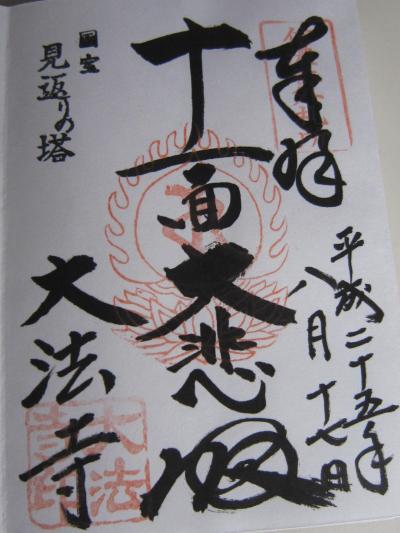 奉拝
平成二十五年
八月十七日
十一面大悲殿
国宝
見返りの塔
大法寺
大法